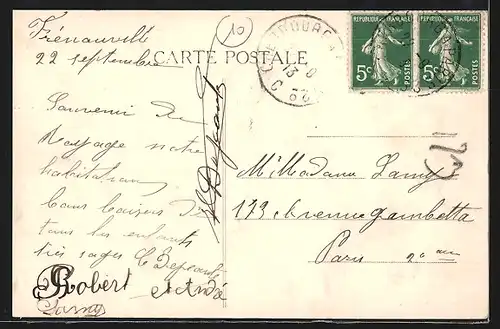 Frénouville
22 septembre
10
CARTE POSTALE
REPUBLIQUE FRANÇAISE
5c POSTES
REPUBLIQUE FRANÇAISE
5c POSTES
Souvenir du
Voyage notre
habitation
bons baisers de
tous les enfants
très sages
Robert et André
M. Madame Lamy
173 Avenue Gambetta
Paris 20